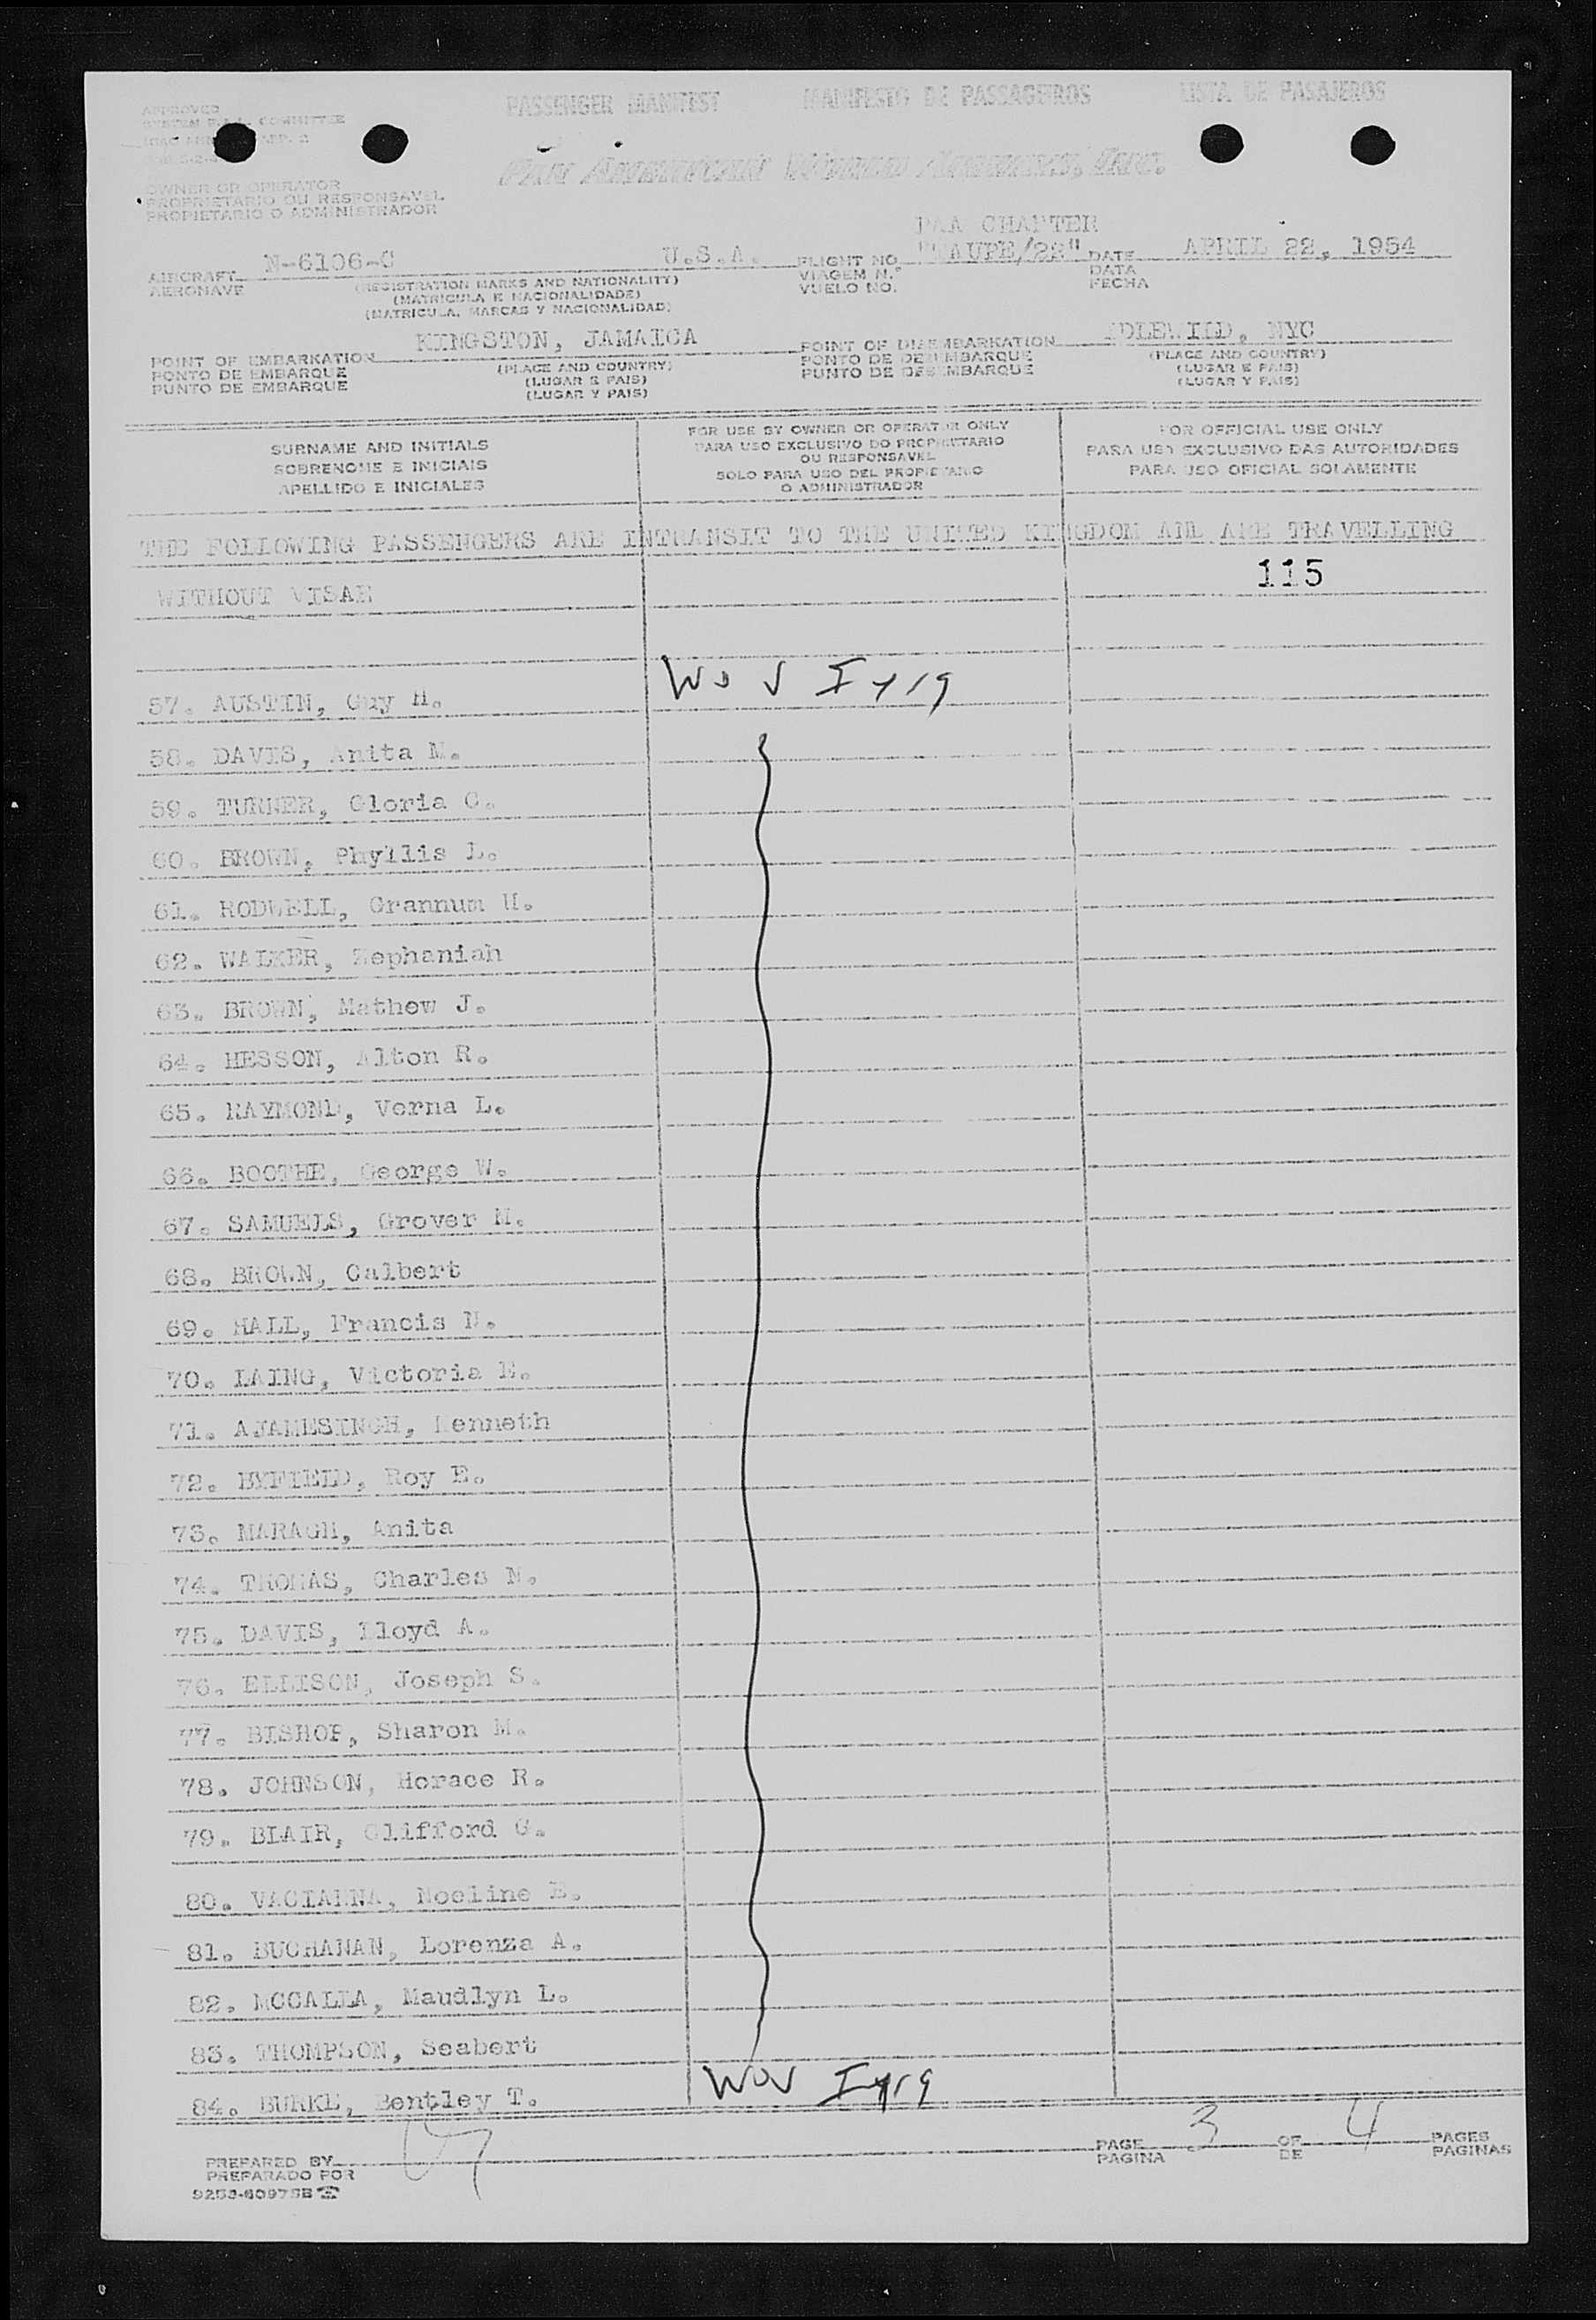 PASSENGER MANIFEST MANIFESTO DE PASSAGEIROS LISTA DE PASAJEROS
APPROVED
SYSTEM F.A.L. COMMITTEE
PAN AMERICAN WORLD AIRWAYS, INC.
OWNER OR OPERATOR
PROPRIETARIO OU RESPONSAVEL
PROPIETARIO O ADMINISTRADOR
PAA CHARTER
AIRCRAFT N-6106-C U.S.A. FLIGHT NO. AUPE/22" DATE APRIL 22, 1954
AERONAVE (REGISTRATION MARKS AND NATIONALITY) VIAGEM N.º DATA
(MATRICULA E NACIONALIDADE) VUELO NO. FECHA
(MATRICULA, MARCAS Y NACIONALIDAD)
POINT OF EMBARKATION KINGSTON, JAMAICA POINT OF DISEMBARKATION IDLEWILD, NYC
PONTO DE EMBARQUE (PLACE AND COUNTRY) PONTO DE DESEMBARQUE (PLACE AND COUNTRY)
PUNTO DE EMBARQUE (LUGAR E PAIS) PUNTO DE DESEMBARQUE (LUGAR E PAIS)
(LUGAR Y PAIS) (LUGAR Y PAIS)
SURNAME AND INITIALS FOR USE BY OWNER OR OPERATOR ONLY FOR OFFICIAL USE ONLY
SOBRENOME E INICIAIS PARA USO EXCLUSIVO DO PROPRIETARIO PARA USO EXCLUSIVO DAS AUTORIDADES
APELLIDO E INICIALES OU RESPONSAVEL PARA USO OFICIAL SOLAMENTE
SOLO PARA USO DEL PROPIETARIO
O ADMINISTRADOR
THE FOLLOWING PASSENGERS ARE INTRANSIT TO THE UNITED KINGDOM AND ARE TRAVELLING
115
WITHOUT VISAE
57. AUSTIN, Guy H.
58. DAVIS, Anita M.
59. TURNER, Gloria C.
60. BROWN, Phyllis L.
61. RODWELL, Grannum U.
62. WALKER, Zephaniah
63. BROWN, Mathew J.
64. HESSON, Alton R.
65. RAYMOND, Verna L.
66. BOOTHE, George W.
67. SAMUELS, Grover M.
68. BROWN, Calbert
69. HALL, Francis N.
70. LAING, Victoria E.
71. AJAMESINGH, Kenneth
72. BYFIELD, Roy E.
73. MARAGH, Anita
74. THOMAS, Charles N.
75. DAVIS, Lloyd A.
76. ELLISON, Joseph S.
77. BISHOP, Sharon M.
78. JOHNSON, Horace R.
79. BLAIR, Clifford G.
80. VACIANNA, Noeline E.
81. BUCHANAN, Lorenza A.
82. MCCALLA, Maudlyn L.
83. THOMPSON, Seabert
84. BURKE, Bentley T.
PREPARED BY PAGE 3 OF 4 PAGES
PREPARADO POR PAGINA DE PAGINAS